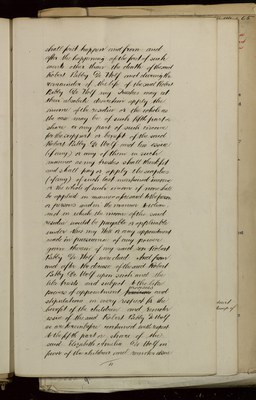 shall first happen and from and
after the happening of the first of such
events other than the death of the said
Robert Bibby De Wolf and during the
remainder of the life of the said Robert
Bibby De Wolf my Trustees may at
their absolute discretion apply the
income of the residue or the whole as
the case may be of such fifth part or
share or any part of such income
for the support or benefit of the said
Robert Bibby De Wolf and his issue
(if any) or any of them in such
manner as my Trustees shall think fit
and shall pay or apply the surplus
(if any) of such last mentioned income
or the whole of such income if none shall
be applied in manner aforesaid to the person
or persons and in the manner to whom
and in which the income of the said
residue would be payable or applicable
under this my Will or any appointment
made in pursuance of any power
given therein if my said son Robert
Bibby De Wolf were dead And from
and after the decease of the said Robert
Bibby De Wolf upon such and the
like trusts and subject to the like
powers of appointment provisions and
stipulations in every respect for the
benefit of the children and remoter
issue of the said Robert Bibby De Wolf
as are hereinbefore mentioned with respect
to the fifth part or share of the
said Elizabeth Amelia De Wolf in
favor of the children and remoter issue